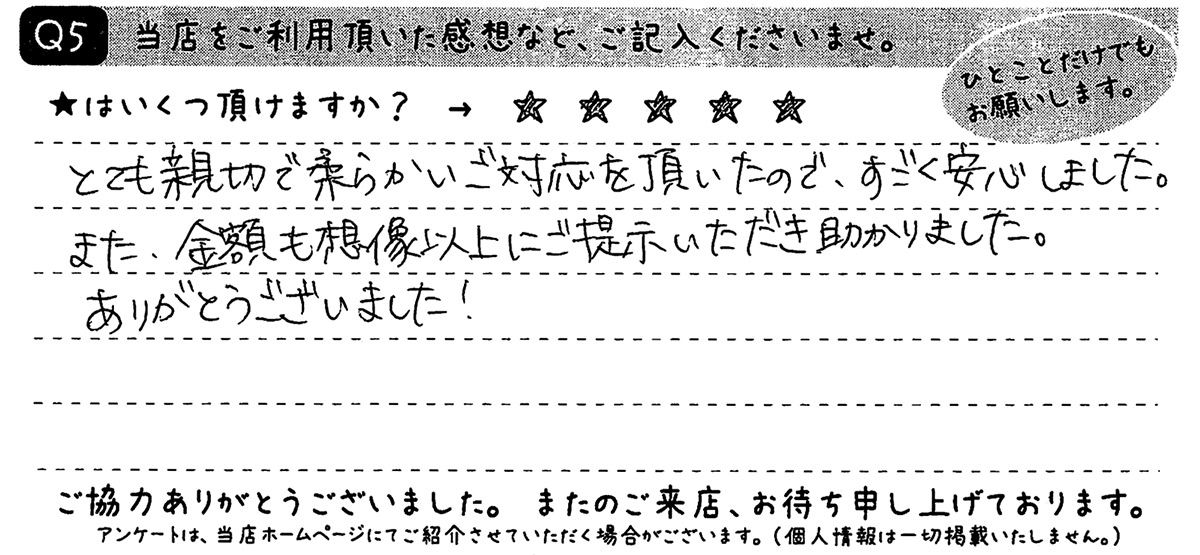 Q5 当店をご利用頂いた感想など、ご記入くださいませ。
ひとことだけでも
お願いします。
★はいくつ頂けますか？ → ☆ ☆ ☆ ☆ ☆
とても親切で柔らかいご対応を頂いたので、すごく安心しました。
また、金額も想像以上にご提示いただき助かりました。
ありがとうございました！
ご協力ありがとうございました。 またのご来店、お待ち申し上げております。
アンケートは、当店ホームページにてご紹介させていただく場合がございます。（個人情報は一切掲載いたしません。）